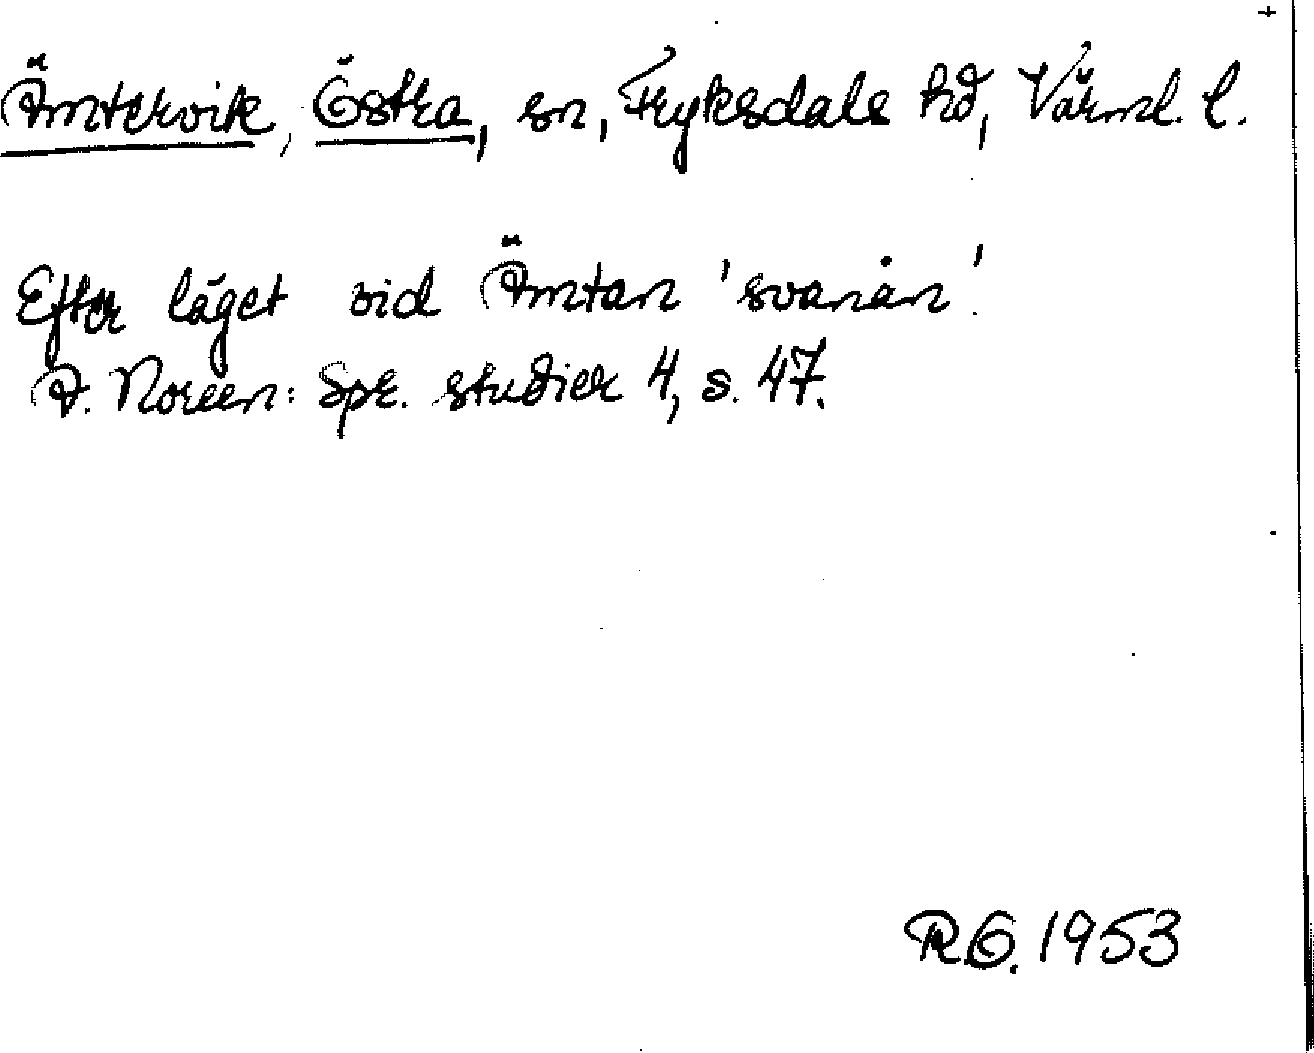 Ämtervik, Östra, sn, Fryksdals hd, Värml. l.
Efter läget vid Ämtan 'svanån'.
A. Noreen: Spr. studier 4, s. 47.
R.O. 1953